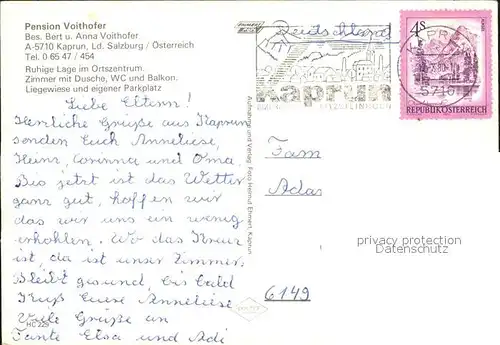 Pension Voithofer
Bes. Bert u. Anna Voithofer
A-5710 Kaprun, Ld. Salzburg / Österreich
Tel. 0 65 47 / 454
Ruhige Lage im Ortszentrum.
Zimmer mit Dusche, WC und Balkon.
Liegewiese und eigener Parkplatz
Liebe Eltern!
Herzliche Grüße aus Kaprun
senden Euch Anneliese,
Heinz, Corinna und Oma.
Bis jetzt ist das Wetter
ganz gut, hoffen wir
das wir uns ein wenig
erhohlen. Wo das Kreuz
ist, da ist unser Zimmer.
Bleibt gesund, bis bald
Gruß Eure Anneliese
Viele Grüße an
Tante Elsa und Adi
HC 225
Aufnahme und Verlag: Foto Helmut Ehmert, Kaprun
Deutschland
Kaprun
4S
5710
REPUBLIK
ÖSTERREICH
Fam
Adas
6149
privacy protection
Datenschutz